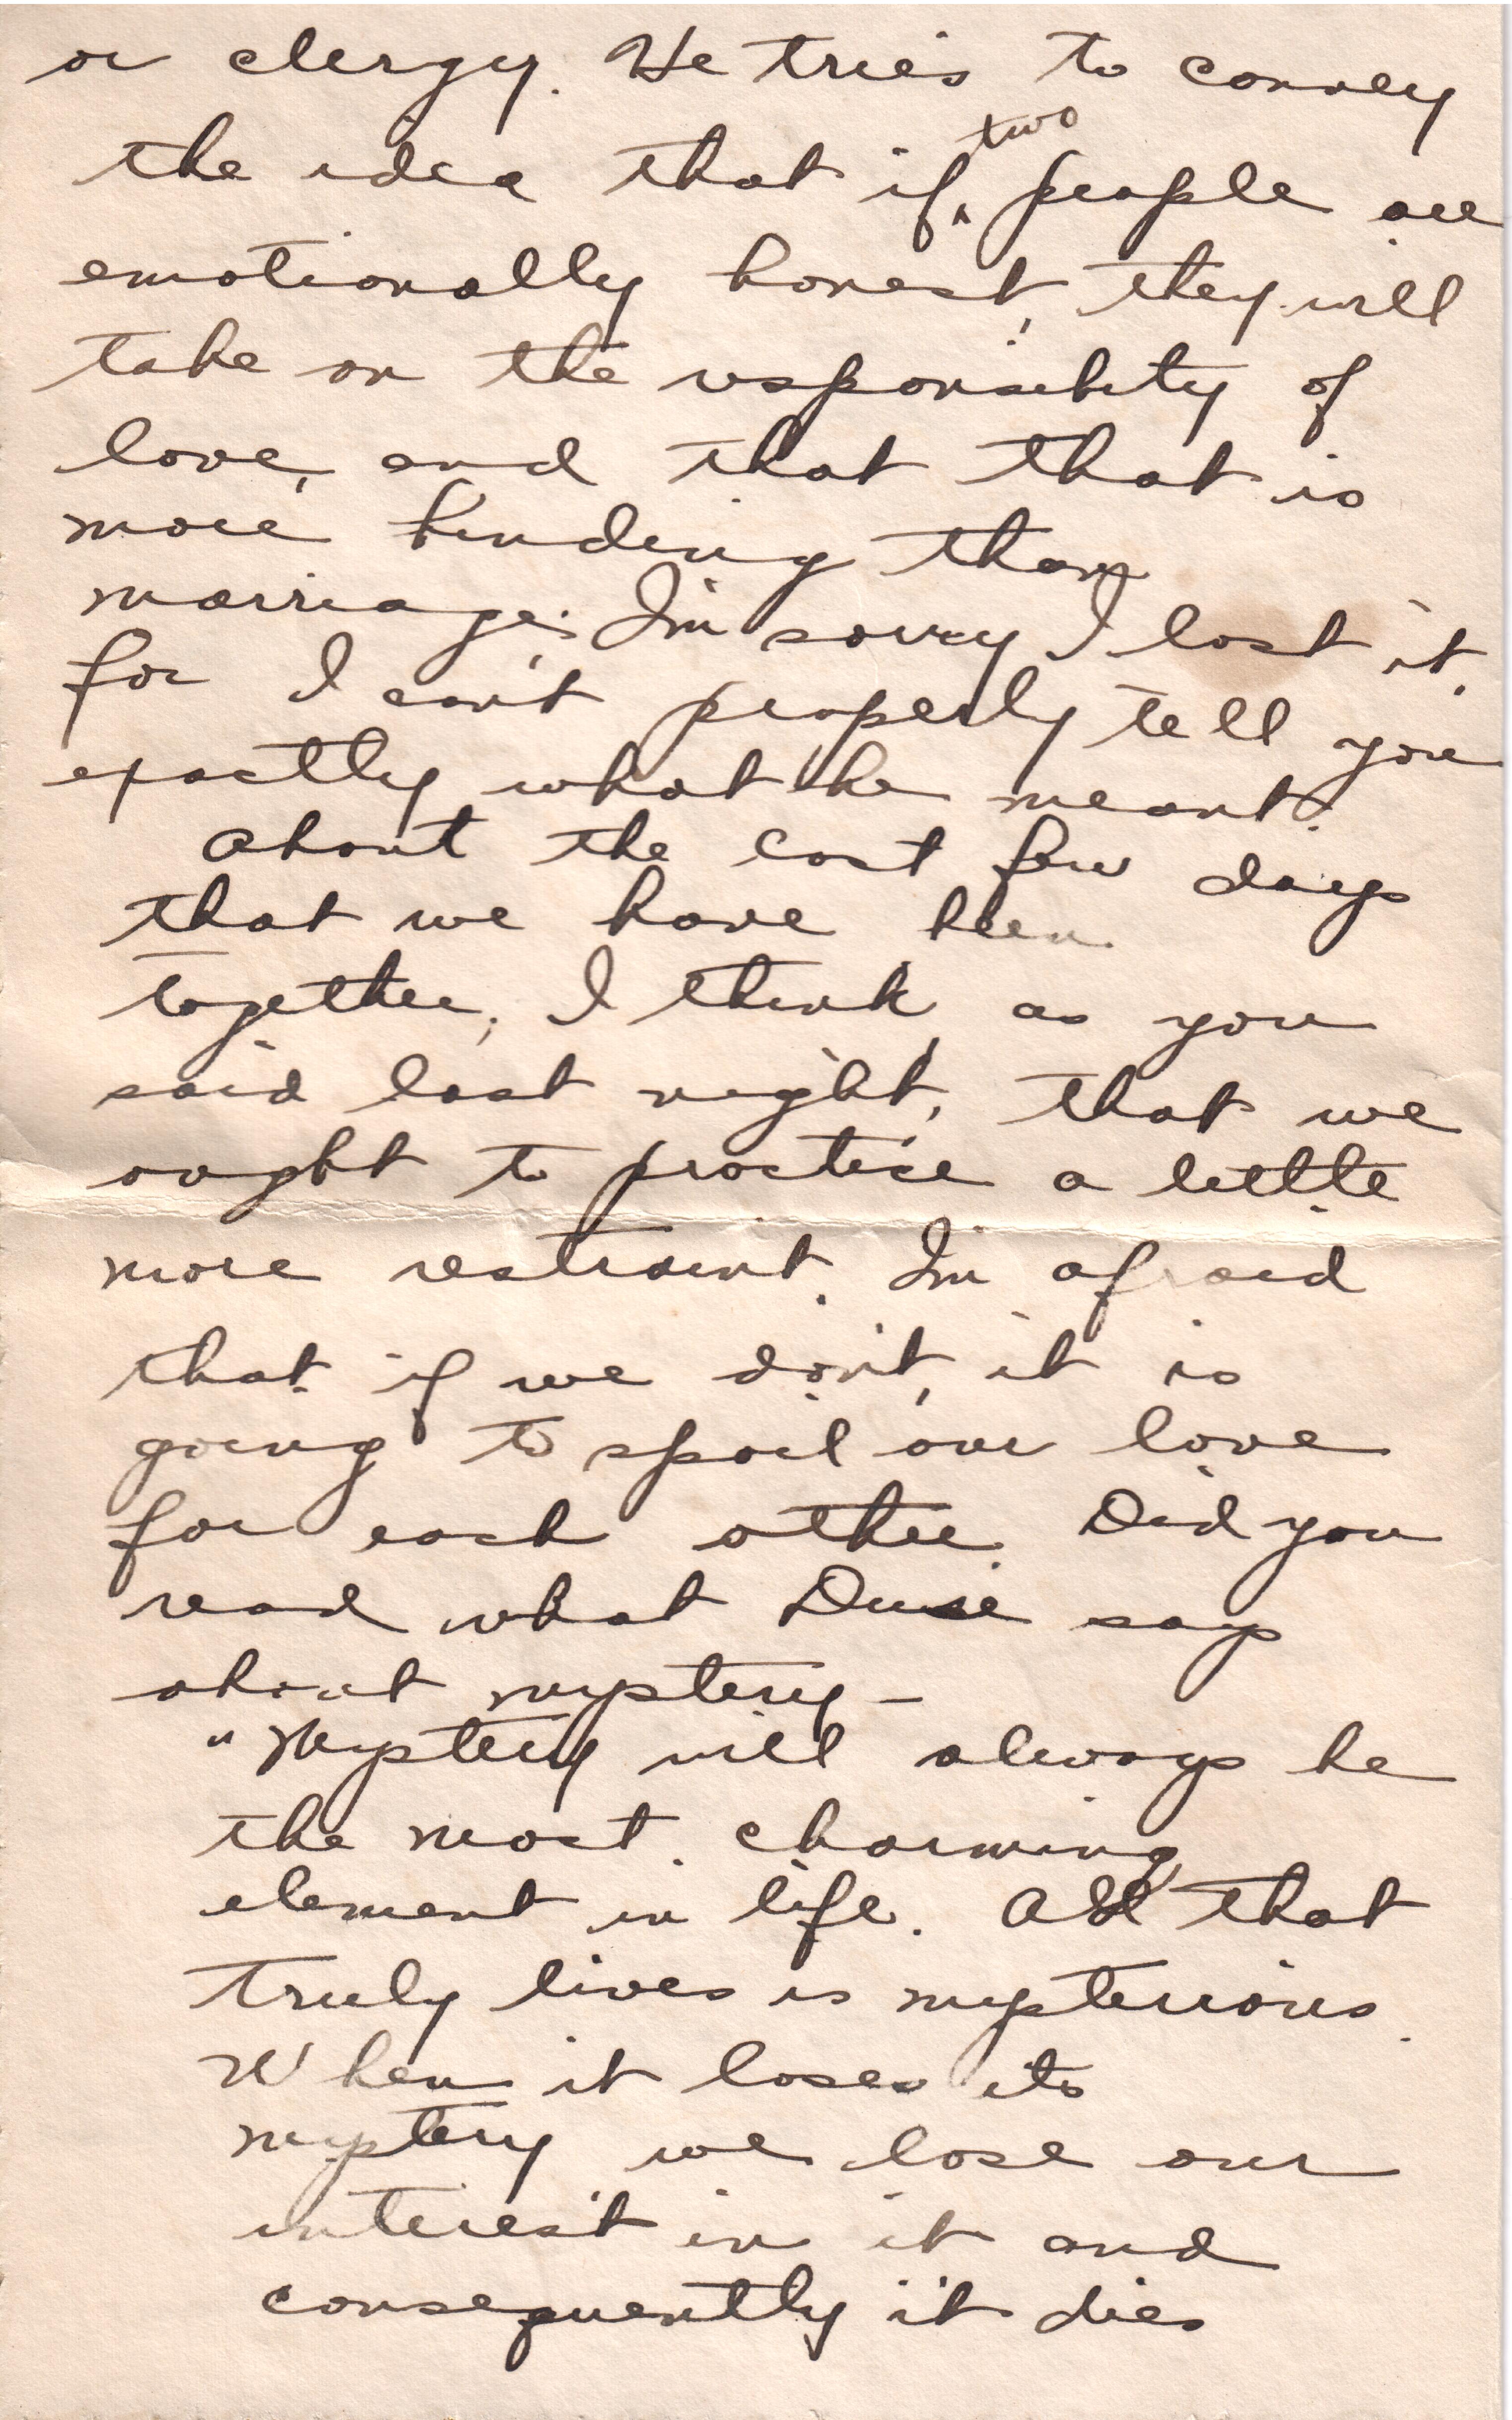 or clergy. He tries to convey
the idea that if two people are
emotionally honest, they will
take on the responsibility of
love, and that that is
more binding than
marriage; I'm sorry I lost it,
for I can't properly tell you
exactly what he meant.
About the last few days
that we have been
together, I think, as you
said last night, that we
ought to practice a little
more restraint. I'm afraid
that if we don't, it is
going to spoil our love
for each other. Did you
read what Duse says
about mystery –
"Mystery will always be
the most charming
element in life. All that
truly lives is mysterious.
When it loses its
mystery we lose our
interest in it and
consequently it dies